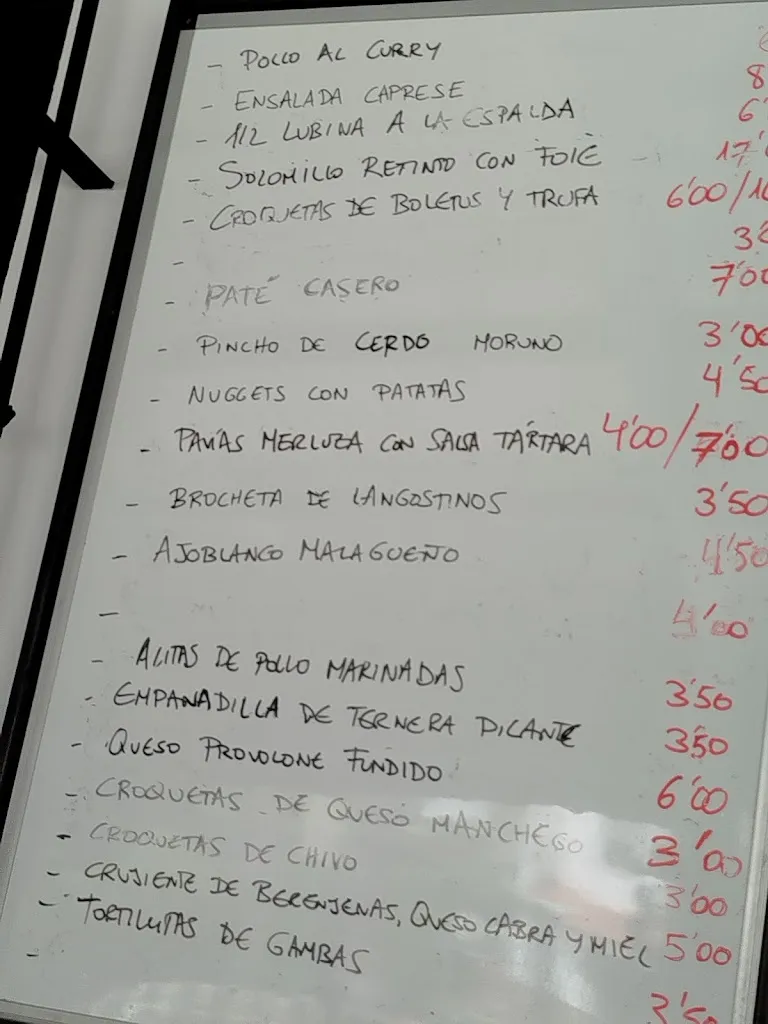 - POLLO AL CURRY
- ENSALADA CAPRESE 8
- 1/2 LUBINA A LA ESPALDA 6'
- SOLOMILLO RETINTO CON FOIE 17'
- CROQUETAS DE BOLETUS Y TRUFA 6'00/10
- 3'
- PATÉ CASERO 7'00
- PINCHO DE CERDO MORUNO 3'00
- NUGGETS CON PATATAS 4'50
- PAVÍAS MERLUZA CON SALSA TÁRTARA 4'00/7'00
- BROCHETA DE LANGOSTINOS 3'50
- AJOBLANCO MALAGUEÑO 4'50
- 4'00
- ALITAS DE POLLO MARINADAS 3'50
- EMPANADILLA DE TERNERA PICANTE 3'50
- QUESO PROVOLONE FUNDIDO 6'00
- CROQUETAS DE QUESO MANCHEGO 3'00
- CROQUETAS DE CHIVO 3'00
- CRUJIENTE DE BERENJENAS, QUESO CABRA Y MIEL 5'00
- TORTILLITAS DE GAMBAS 3'50
-